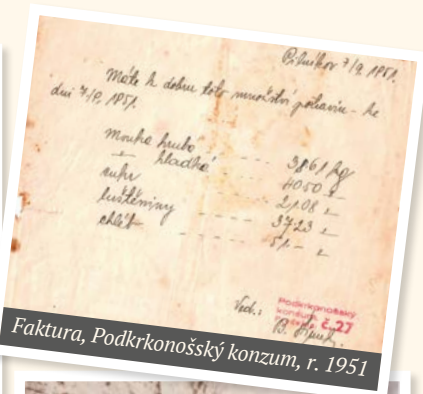 Pilníkov 7/9. 1951.
Máte k dobru toto množství potravin - ke
dni 7/9. 1951.
mouka hrubá - - - - 38.61 kg
" hladká - - - - 40.50 "
cukr - - - - 21.08 "
luštěniny - - - - 37.23 "
chléb - - - - 51.- "
Ved.:
Podkrkonošský
konzum
č. 27
B.
Faktura, Podkrkonošský konzum, r. 1951